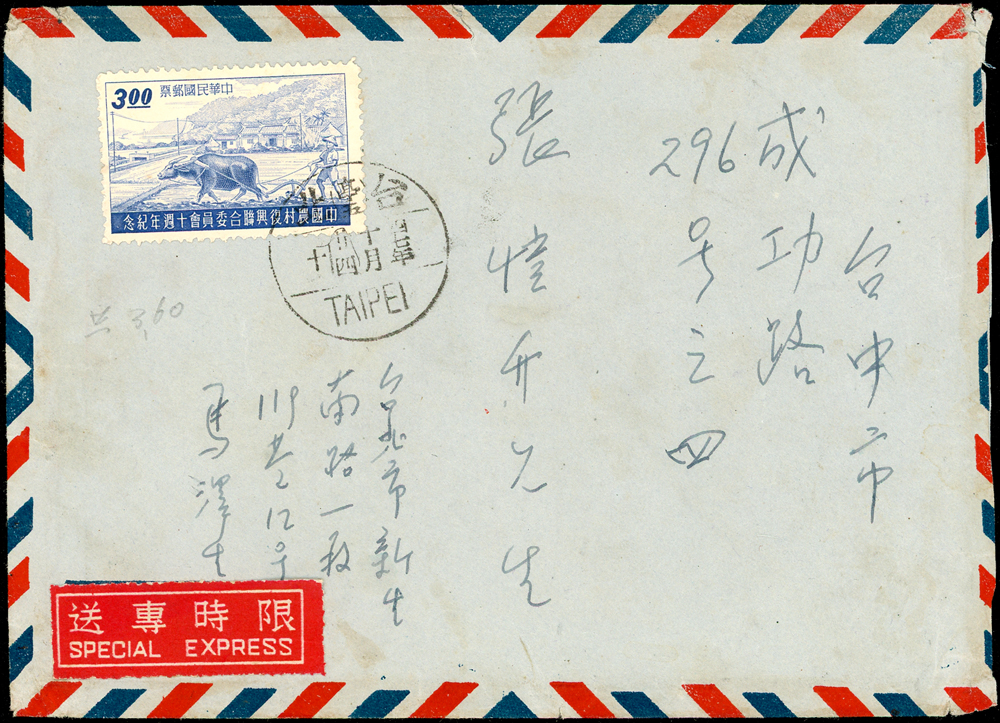 3.00
中華民國郵票
中國農村復興聯合委員會十週年紀念
台臺北
四七年
十月
廿四
十
TAIPEI
共 3.60
台中市
成功路
296號之四
張愷升先生
台北市新生
南路一段
119巷12号
馬澤生
限時專送
SPECIAL EXPRESS